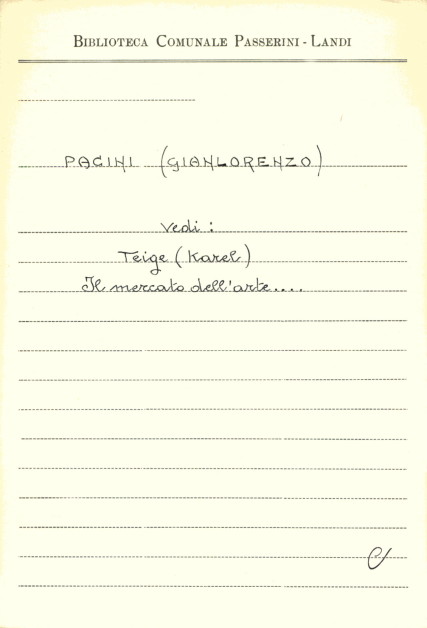 BIBLIOTECA COMUNALE PASSERINI - LANDI
PACINI (GIANLORENZO)
Vedi :
Teige (Karel)
Il mercato dell'arte....